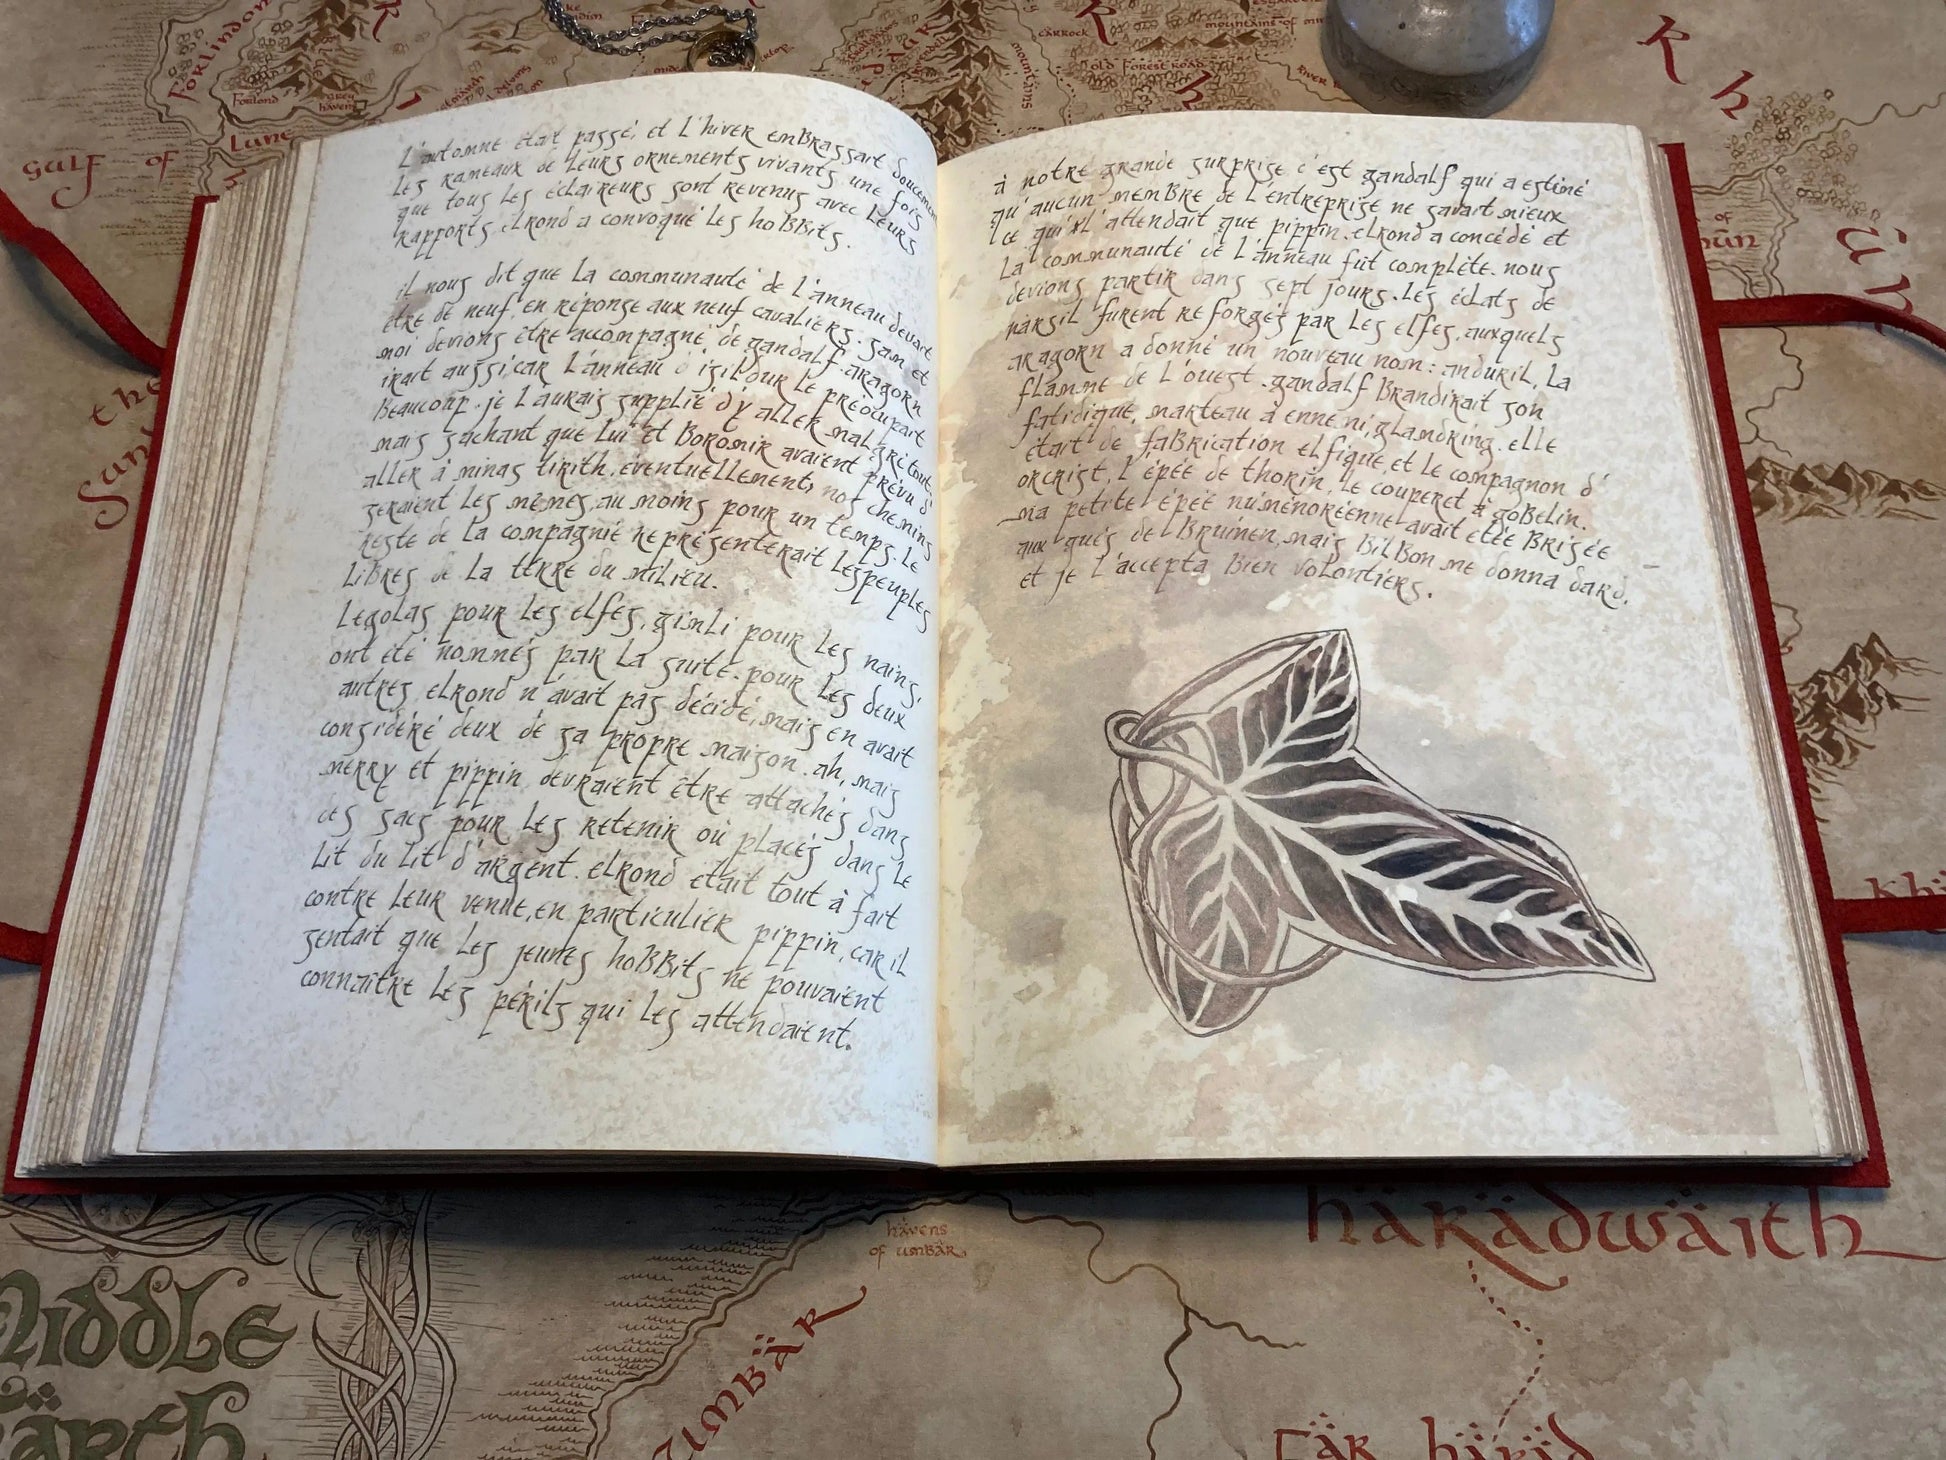 L'automne était passé, et L'hiver embrassait doucement
Les rameaux de Leurs ornements vivants. une fois
que tous Les éclaireurs sont revenus avec Leurs
rapports, elrond a convoqué Les hobbits.
il nous dit que La communauté de L'anneau devait
être de neuf, en réponse aux neuf cavaliers. sam et
moi devions être accompagné, de gandalf. aragorn
irait aussi, car L'anneau d'isildur Le préoccupait
Beaucoup. je L'aurais supplié d'y aller malgré tout,
mais sachant que Lui et Boromir avaient prévu d'
aller à minas tirith, éventuellement, nos chemins
seraient Les mêmes, au moins pour un temps. Le
reste de La compagnie représenterait Les peuples
Libres de La terre du milieu.
Legolas pour Les elfes, gimli pour Les nains,
ont été nommés par La suite. pour Les deux
autres, elrond n'avait pas décidé, mais en avait
considéré deux de sa propre maison. ah, mais
merry et pippin devraient être attachés dans
des sacs pour Les retenir où placés dans Le
Lit du Lit d'argent. elrond était tout à fait
contre Leur venue, en particulier pippin, car il
sentait que Les jeunes hobbits ne pouvaient
connaître Les périls qui Les attendaient.
à notre grande surprise c'est gandalf qui a estimé
qu'aucun membre de L'entreprise ne savait mieux
ce qui L'attendait que pippin. elrond a concédé et
La communauté de L'anneau fut complète. nous
devions partir dans sept jours. Les éclats de
narsil furent reforgés par Les elfes, auxquels
aragorn a donné un nouveau nom: anduril, La
flamme de L'ouest. gandalf Brandirait son
fatidique, marteau à ennemi, glamdring. elle
était de fabrication elfique, et Le compagnon d'
orcrist, L'épée de thorin, Le couperet à gobelin.
ma petite épée numénoréenne avait étée Brisée
aux gués de Bruinen, mais Bilbon me donna dard,
et je L'accepta Bien volontiers.
Forlindon
Forlond
grey havens
gulf of Lune
carrock
old Forest road
mountains
havens
of umbar
umbar
haradwaith
Far harad
Middle
Earth